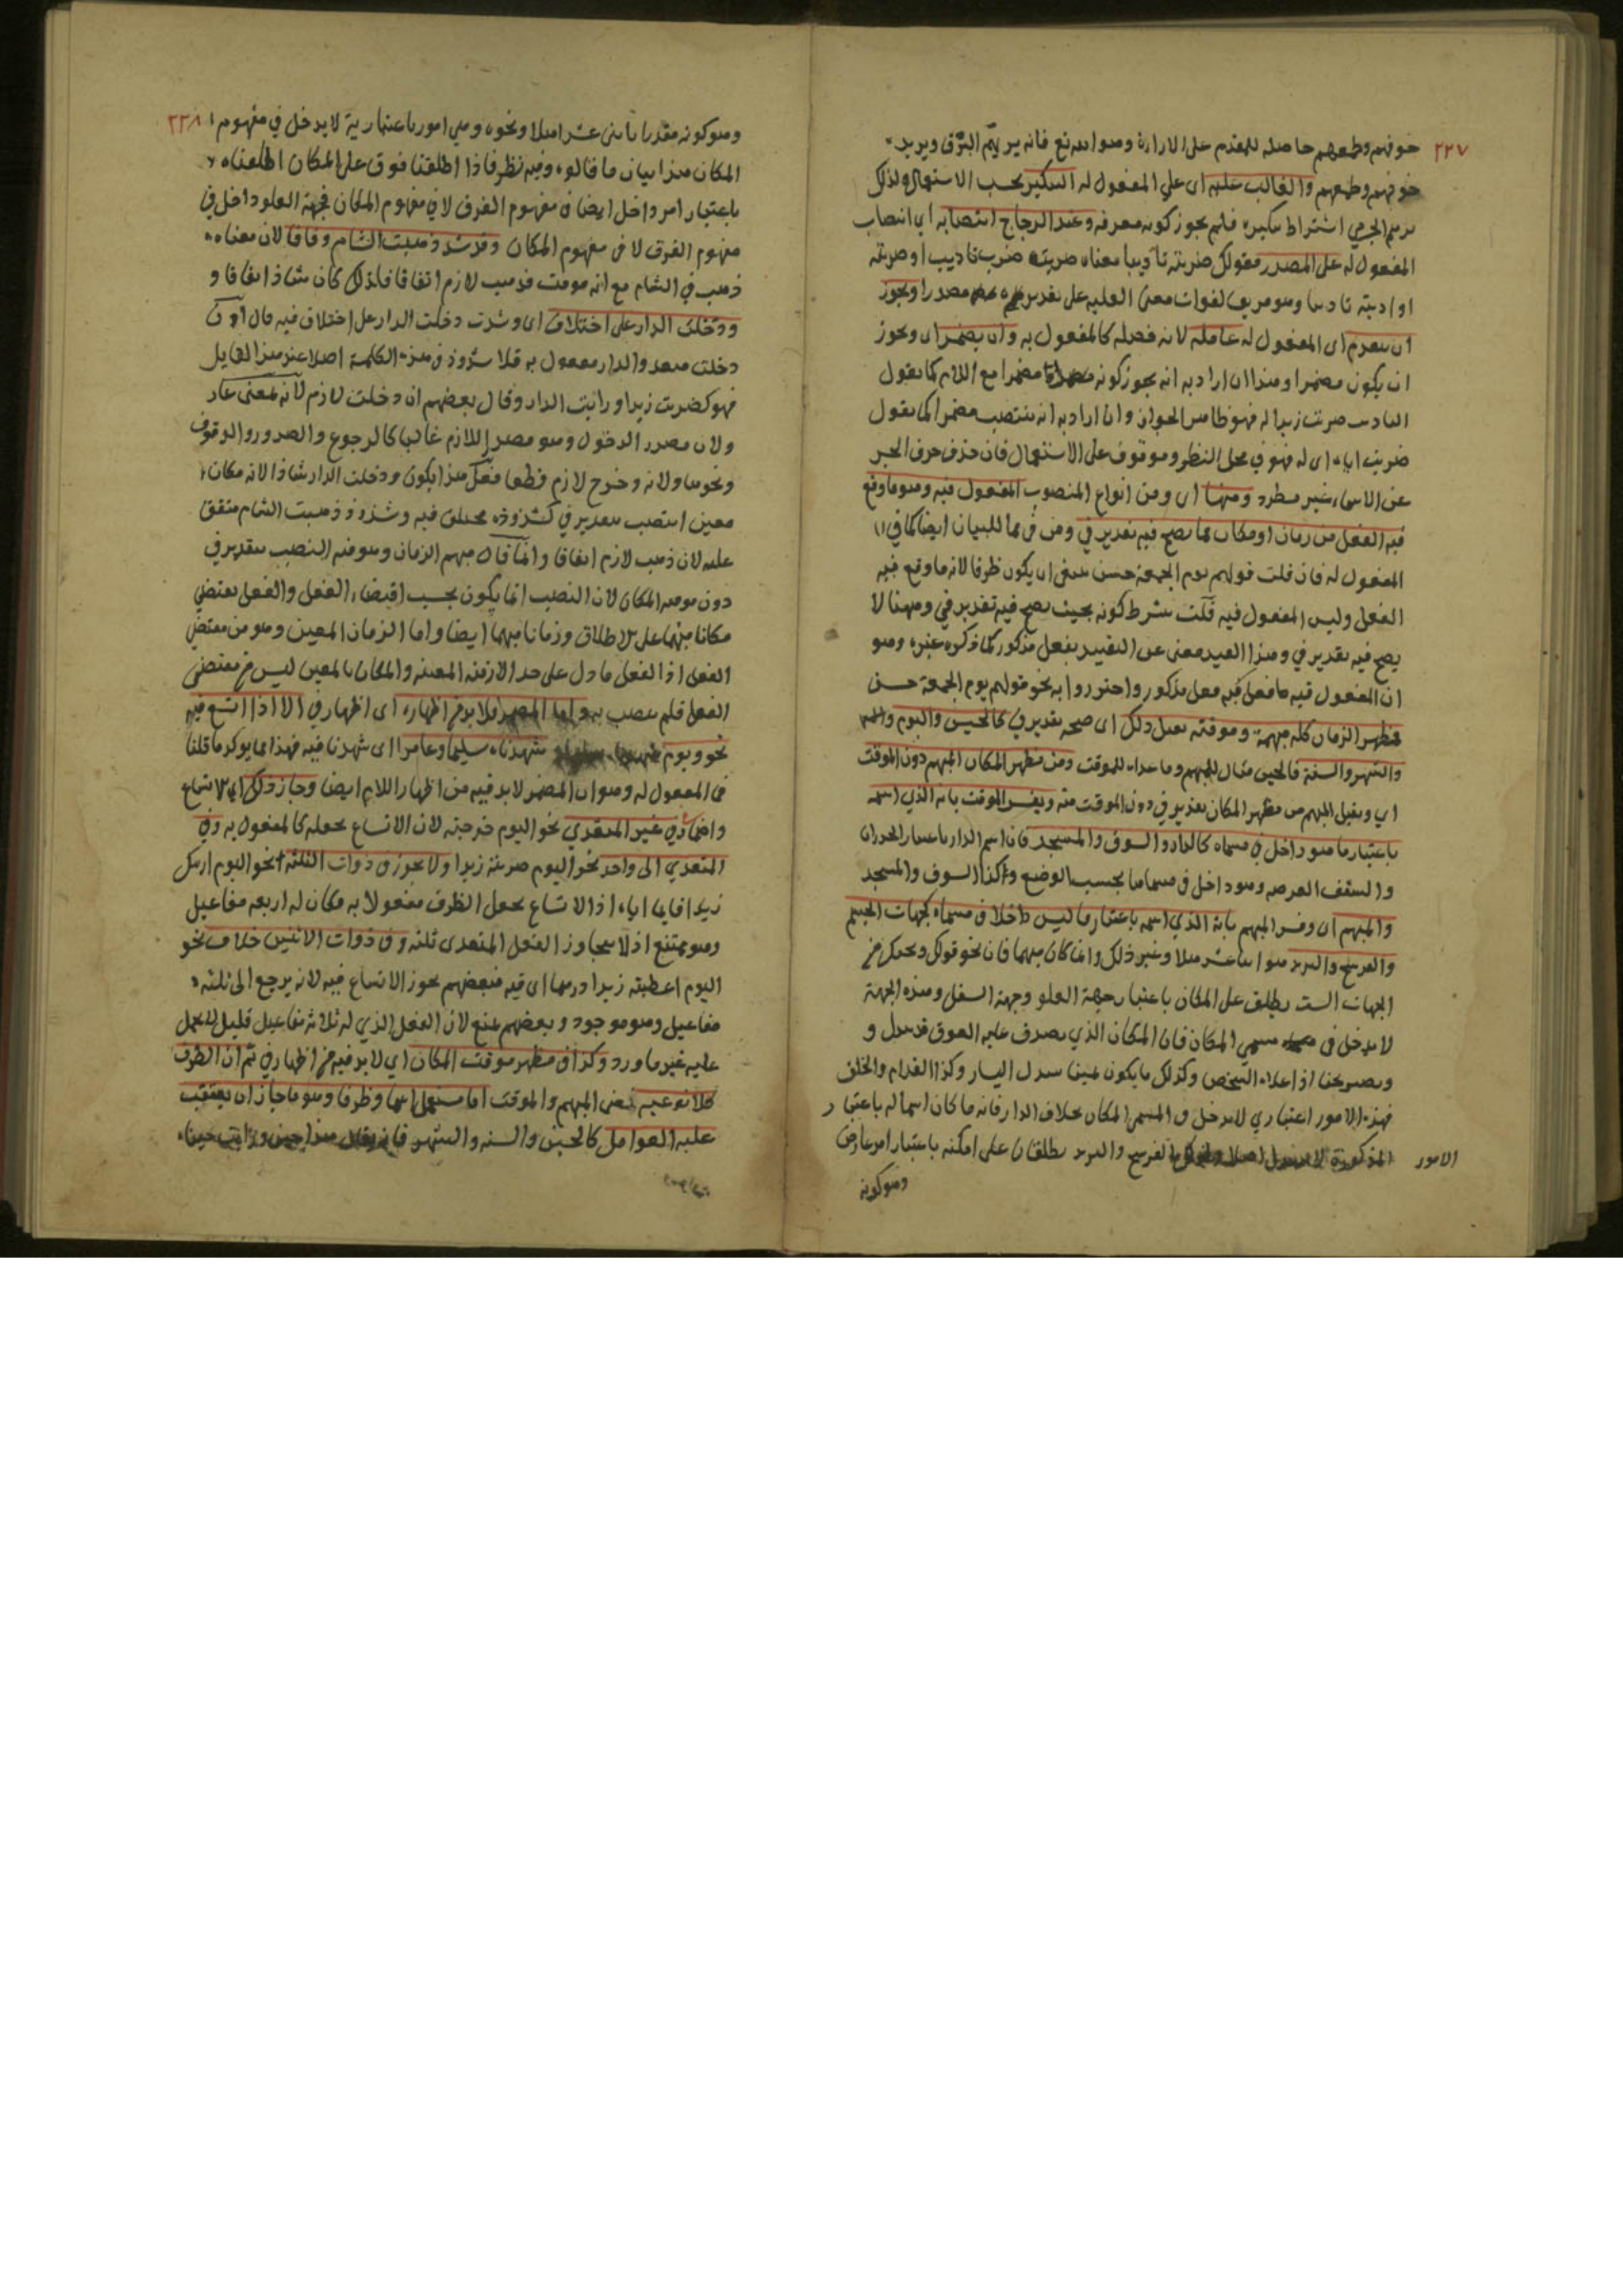 ٢٢٧
خوفهم وطمعهم حاصله للمقدم على الارادة وهو الله تع فانه يريهم البرق ويريد
خوفهم وطمعهم والغالب عليه اى على المفعول له التنكير بحسب الاستعمال ولذلك
الجرمي اشتراط تنكيره فلم يجوز كونه معرفه وعند الزجاج انتصابه اى انتصاب
المفعول له على المصدر فقولك ضربته تاديبا معناه ضربته ضرب تاديب او ضربته
او ادبته تاديبا وهو مزيف لفوات معنى العليه على تقديره مصدرا ويجوز
ان يتقدم اى المفعول له عامله لانه فضله كالمفعول به وان يضمر اى ويجوز
ان يكون مضمرا وهذا ان اراد به انه يجوز كونه مضمرا مع اللام كما يقول
التاديب ضربت زيدا له فهو ظاهر الجواز وان اراد به انه ينتصب مضمرا كما يقول
ضربت اياه اى له فهو في محل النظر وموقوف على الاستعمال فان حذف حرف الجر
عن الاسماء غير مطرد ومنها اى ومن انواع المنصوب المفعول فيه وهو ما وقع
فيه الفعل من زمان او مكان مما يصح فيه تقدير في ومن في مما للبيان ايضا كما في
المفعول له فان قلت قولهم يوم الجمعة حسن ينبغى ان يكون ظرفا لانه ما وقع فيه
الفعل وليس المفعول فيه قلت بشرط كونه بحيث يصح فيه تقدير في وههنا لا
يصح فيه تقدير في وهذا القيد مغنى عن التقييد بفعل مذكور كما ذكره غيره وهو
ان المفعول فيه ما فعل فيه فعل مذكور واحترزوا به نحو قولهم يوم الجمعة حسن
فظهر الزمان كله مبهمة وموقته يقبل ذلك اى صحه تقدير في كالحين واليوم
والشهر والسنة فالحين مثال للمبهم وما عداه للموقت ومن مظهر المكان المبهم دون الموقت
اي ويقبل المبهم من مظهر المكان تقدير في دون الموقت منه ويفسر الموقت بانه الذي اسمه
باعتبار ما هو داخل في مسماه كالدار والسوق والمسجد فان اسم الدار باعتبار الجدران
والسقف العرصه وهو داخل في مسماها بحسب الوضع وكذا السوق والمسجد
والمبهم اى وفسر المبهم بانه الذي اسمه باعتبار ما ليس داخلا في مسماه كجهات الجسم
والفرسخ والبريد هو اثنا عشر ميلا وغير ذلك وانما كان مبهما فان نحو قولك
الجهات الست يطلق على المكان باعتبار جهة العلو وجهة السفل وهذه الجهة
لا يدخل في مسمى المكان فان المكان الذي يصدق عليه الفوق
ويصير تحتا اذا علاه الشخص وكذلك ما يكون يمينا اليسار وكذا القدام والخلف
فهذه الامور اعتباري لا يدخل في المسمى المكان بخلاف الدار فانه ما كان اسما له باعتبار
الامور المذكورة الفرسخ والبريد يطلقان على امكنه باعتبار امر عارض
وهو كونه
٢٢٨
وهو كونه مقدرا باثنى عشر ميلا ونحوه وهي امور باعتبارية لا يدخل في مفهوم
المكان هذا بيان ما قالوه وفيه نظر فاذا اطلقنا فوق على المكان اطلقناه
باعتبار امر داخل ايضا في مفهوم الفوق لا في مفهوم المكان فجهة العلو داخل في
مفهوم الفوق لا في مفهوم المكان وقد شذ ذهبت الشام وفاقا لان معناه
ذهب في الشام مع انه موقت فذهب لازم اتفاقا فلذلك كان شاذا اتفاقا و
ودخلت الدار على اختلاف اى وشذت دخلت الدار على اختلاف فيه قال
دخلت متعد والدار مفعول به فلا شذوذ في هذه الكلمة اصلا عند هذا القايل
فهو كضربت زيدا ورايت الدار وقال بعضهم ان دخلت لازم لانه
ولان مصدر الدخول وهو مصدر اللازم غالبا كالرجوع والصدور والوقوف
ونحوها ولانه وخرج لازم قطعا فعلى هذا يكون ودخلت الدار شاذا لانه مكان
معين انتصب بتقدير في فشذوذه مختلف فيه وشذوذ ذهبت الشام متفق
عليه لان ذهب لازم اتفاقا وانما قال مبهم الزمان وموقته النصب بتقدير في
دون موقت المكان لان النصب انما يكون بحسب اقتضاء الفعل والفعل يقتضي
مكانا مبهما على الاطلاق وزمانا مبهما ايضا واما الزمان المعين وهو من مقتضى
الفعل اذ الفعل ما دل على احد الازمنه المعينه والمكان بالمعين ليس من مقتضى
الفعل فلم ينصب به واما المضمر فلا بد من اظهاره اى اظهار في الا اذا اتسع فيه
نحو ويوم شهدناه سليما وعامرا اى شهدنا فيه فهذا مما يوكد ما قلنا
في المفعول له وهو ان المضمر لا بد فيه من اظهار اللام ايضا وجاز ذلك اى الاتساع
في غير المتعدي نحو اليوم خرجته لان الاتساع يجعله كالمفعول به وفي
المتعدي الى واحد نحو اليوم ضربته زيدا ولا يجوز في ذوات الثلثه نحو اليوم
زيدا قايما اياه اذ الاتساع يجعل الظرف مفعولا به فكان له اربعه مفاعيل
وهو ممتنع اذ لا يتجاوز الفعل المتعدى ثلثه وفي ذوات الاثنين خلاف نحو
اليوم اعطيته زيدا درهما اى فيه فبعضهم يجوز الاتساع فيه لانه يرجع الى ثلثه
مفاعيل وهو موجود وبعضهم يمنع لان الفعل الذي له ثلاثه مفاعيل قليل
عليه غير ما ورد وكذا في مظهر موقت المكان اي لا بد فيه من اظهار في ثم ان الظرف
كلا نوعيه يعنى المبهم والموقت اما مستعمل اسما وظرفا وهو ما جاز ان يعتقب
عليه العوامل كالحين والسنه والشهر فانه يقال هذا حين ورايت حينا